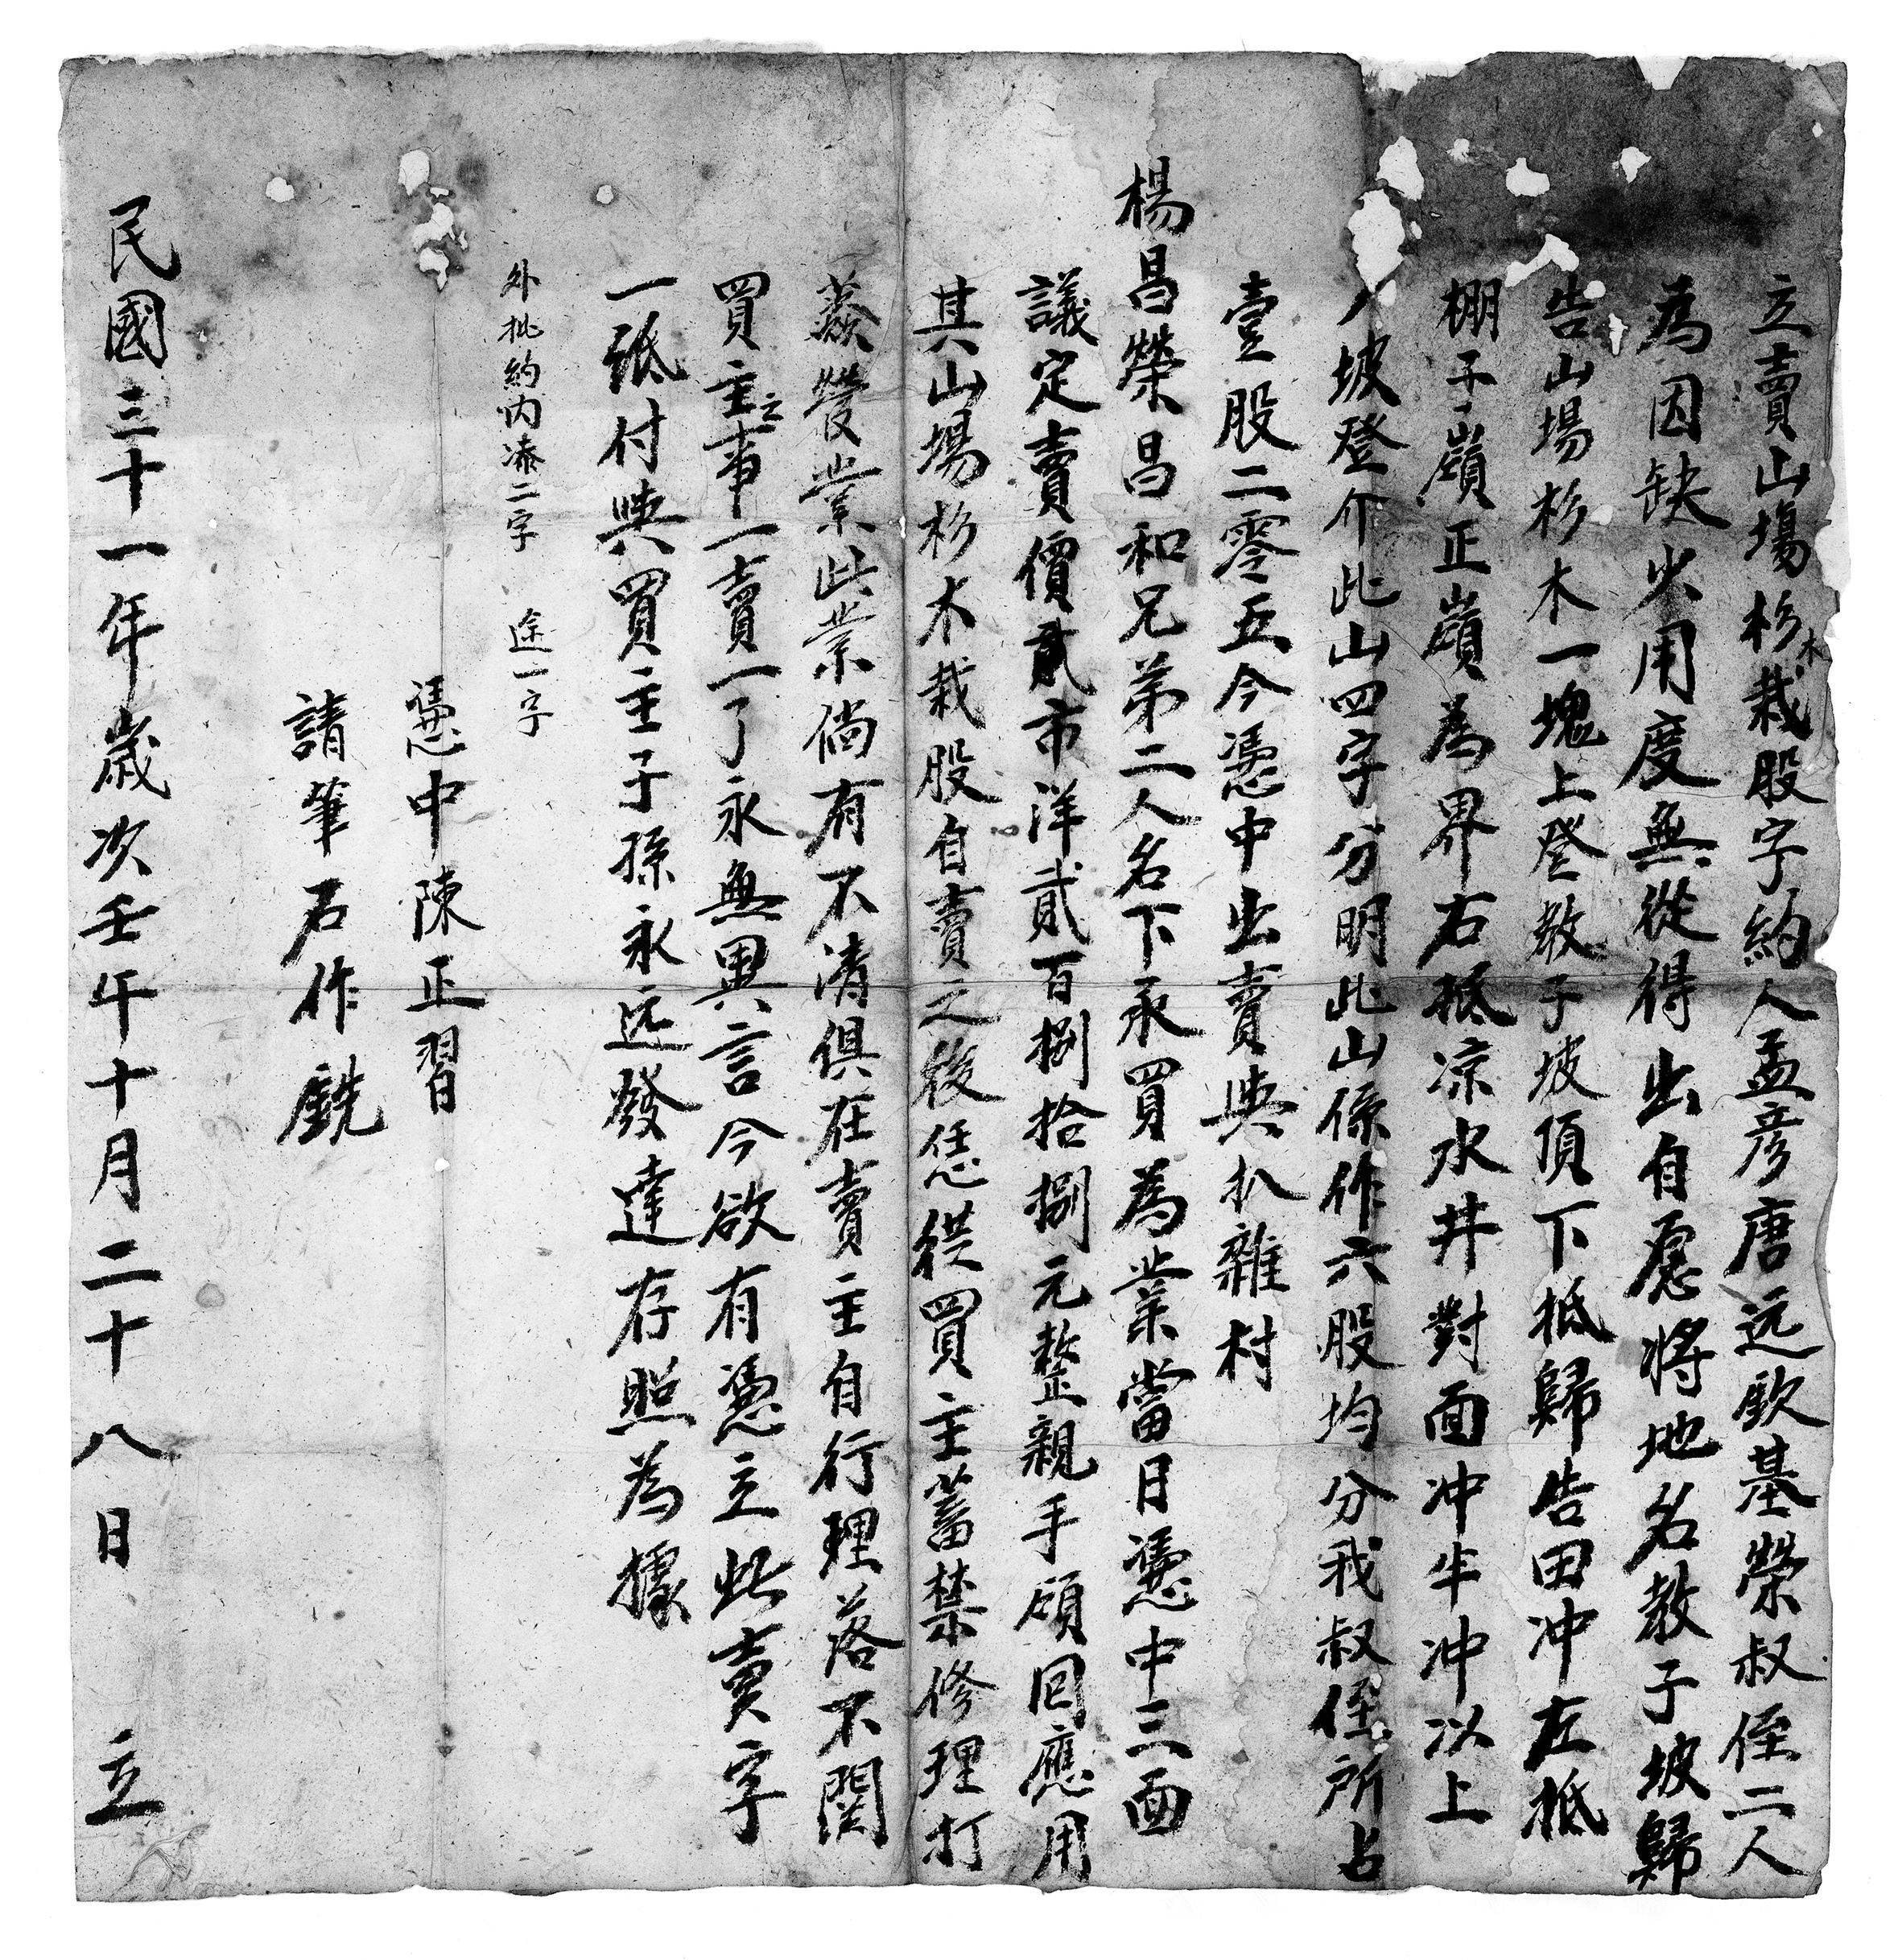 立賣山塲杉木栽股字約人孟彦唐远欽基榮叔侄二人
為因缺少用度無從得出自愿將地名教子坡歸
告山塲杉木一塊上登教子坡頂下抵歸告田冲左抵
棚子嶺正嶺為界右抵凉水井對面冲半冲以上
坡登介此山四字分明此山係作六股均分我叔侄所占
壹股二零五今憑中出賣與扒雜村
楊昌榮昌和兄弟二人名下承買為業當日憑中三面
議定賣價市洋貳百捌拾捌元整親手領回應用
其山塲杉木栽股自賣之後恁從買主蓄禁修理打
蔸發業此業倘有不清俱在賣主自行理落不関
買主之事一賣一了永無異言今欲有憑立此賣字
一紙付與買主子孫永远發達存照為據
外批約内添二字 途一字
憑中陳正習
請筆石作銑
民國三十一年歲次壬午十月二十八日 立